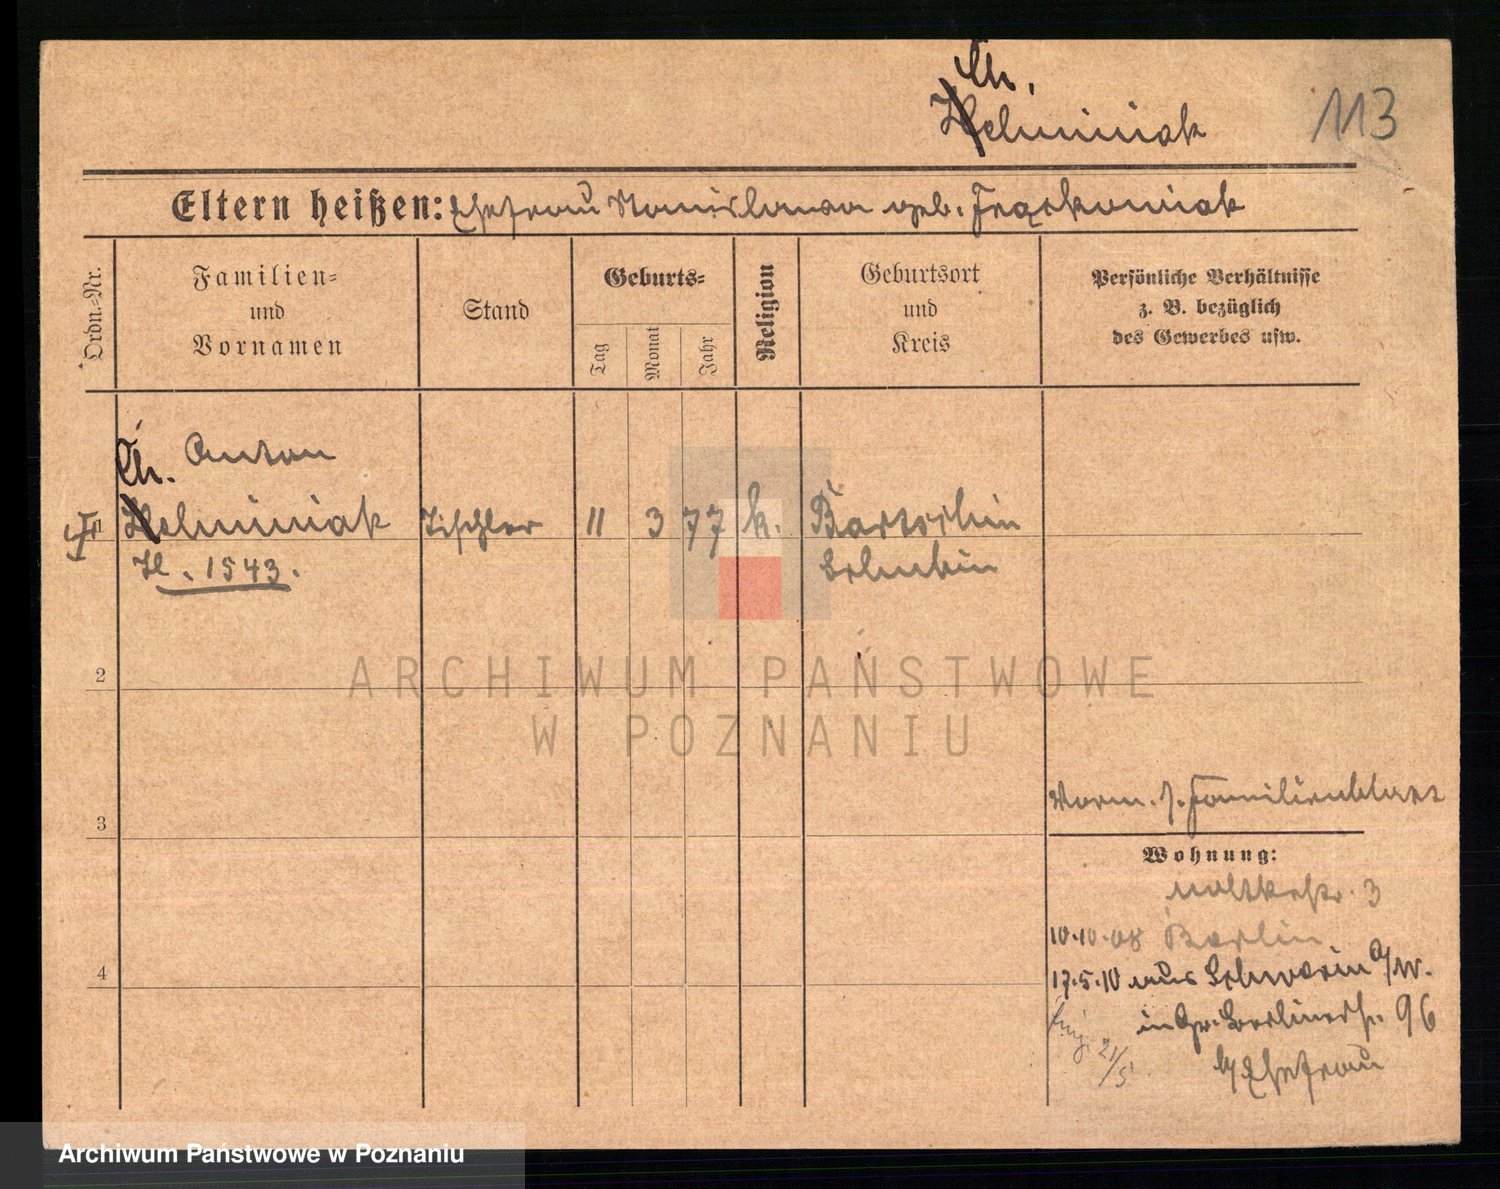 Ch.
Helminiak
113
Eltern heißen: Ehefrau Stanislawa geb. Frąskowiak
Ordn.-Nr.
Familien-
und
Vornamen
Stand
Geburts-
Tag
Monat
Jahr
Religion
Geburtsort
und
Kreis
Persönliche Verhältnisse
z. B. bezüglich
des Gewerbes usw.
Ch. Anton
Helminiak Tischler 11 3 77 k. Bartschin
H. 1543. Schubin
2
3
4
Vorm. s. Familienblatt
Wohnung:
Moltkestr. 3
10.10.08 Berlin
17.5.10 aus Schwerin a/W.
in Gr. Berlinerstr. 96
21/5
b/ Ehefrau
ARCHIWUM PAŃSTWOWE
W POZNANIU
Archiwum Państwowe w Poznaniu